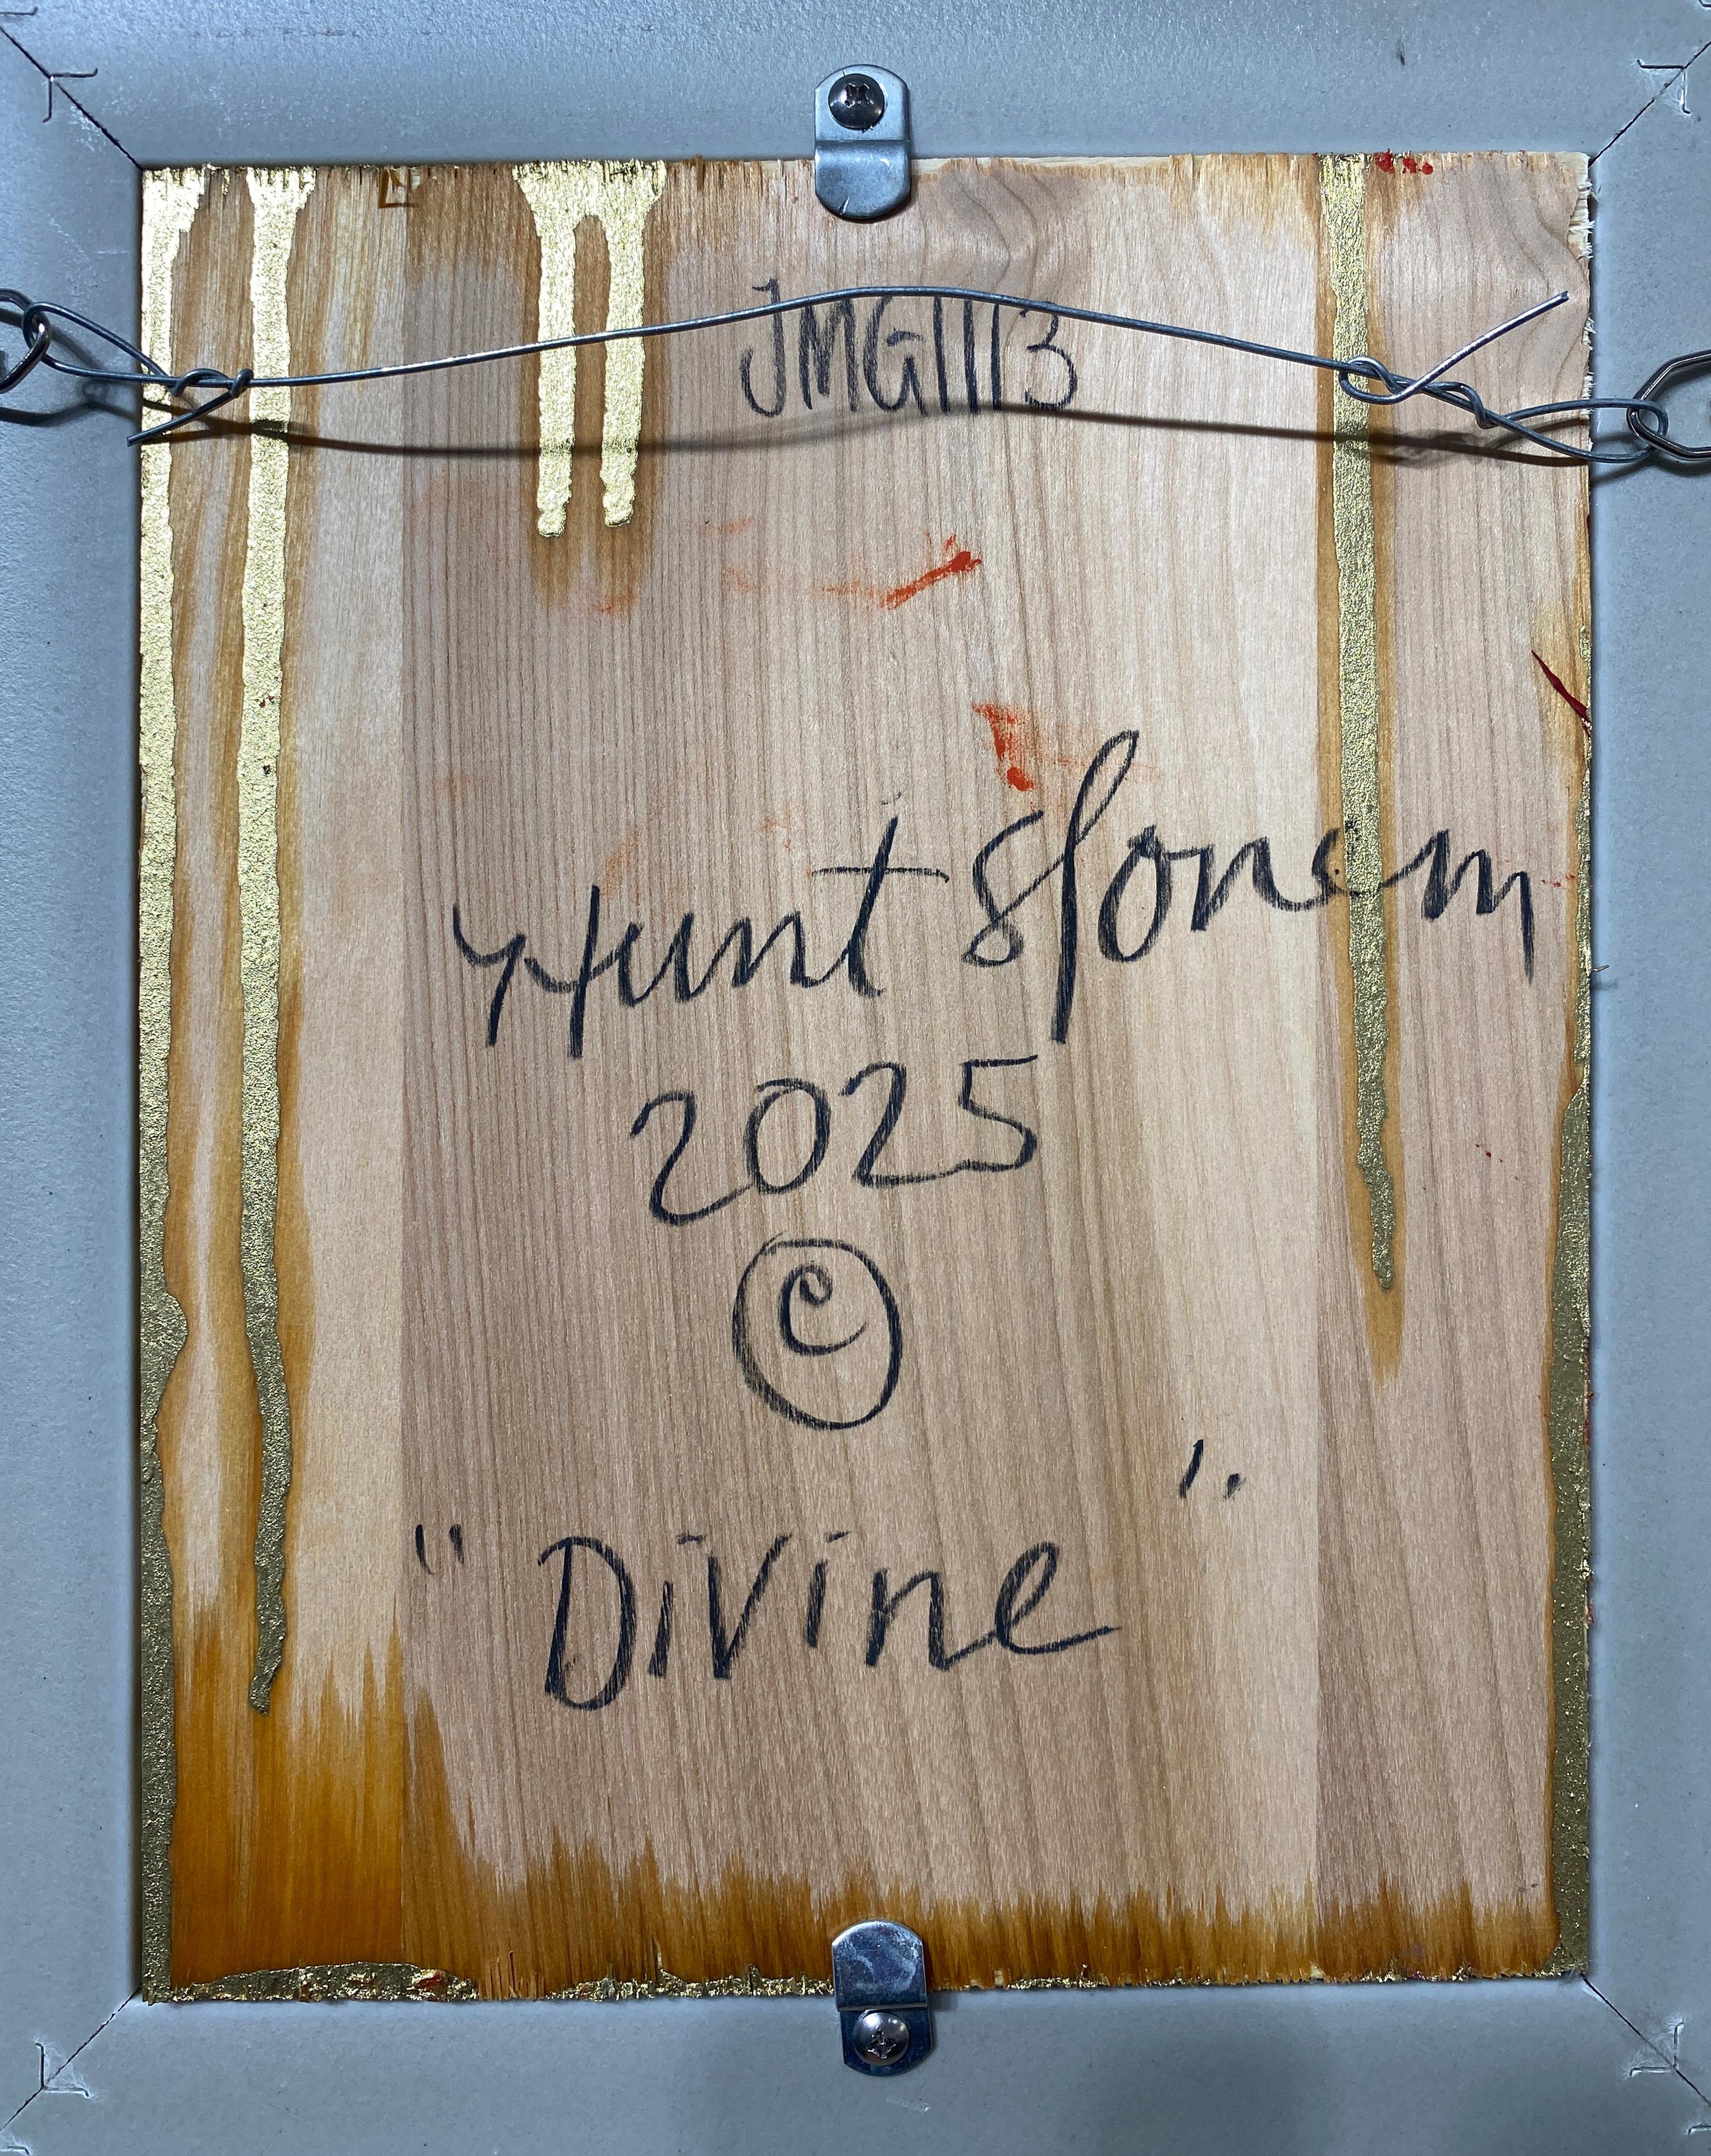 JMG1113
Hunt Slonem
2025
©
"Divine"